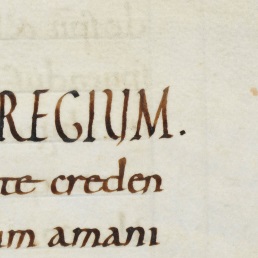 REGIUM.
te creden
um amani